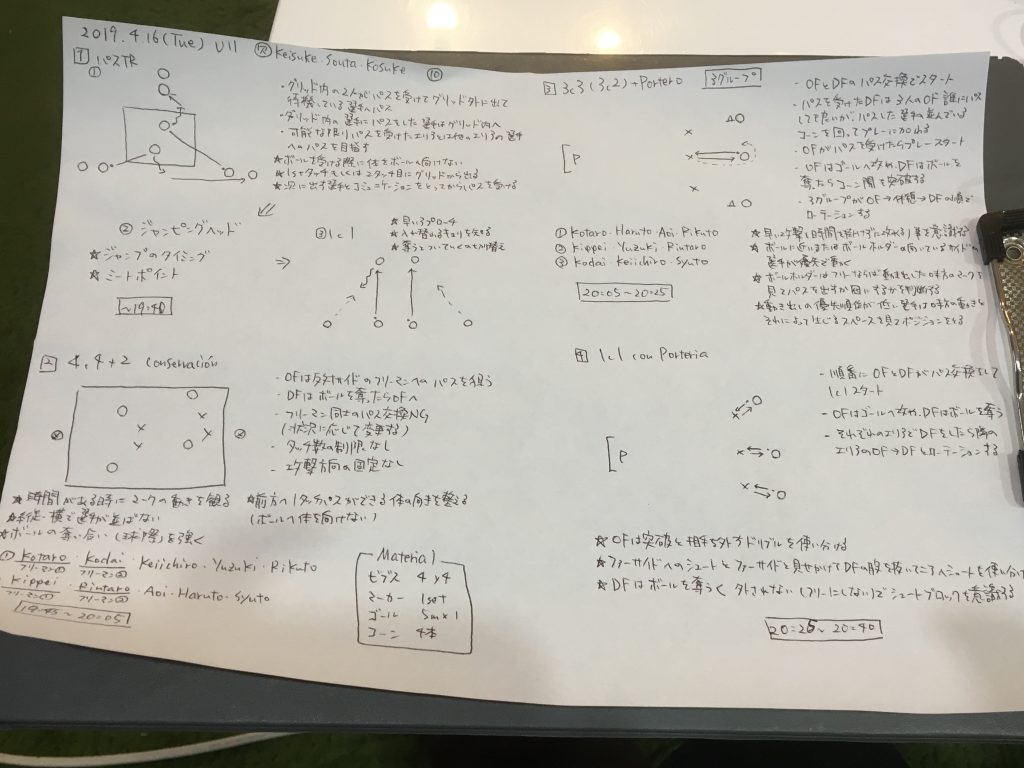 2019.4.16(Tue) U11 欠 Keisuke・Souta・Kosuke ⑩
1 パスTR
①
・グリッド内の2人がパスを受けてグリッド外に出て
待機している選手へパス
・グリッド内の選手にパスをした選手はグリッド内へ
・可能な限りパスを受けたエリアとは他のエリアの選手
へのパスを目指す
★ボールを受ける際に体をボールへ向けない
★1stタッチもしくは2タッチ目にグリッドから出る
★次に出す選手とコミュニケーションをとってからパスを受ける
② ジャンピングヘッド
★ジャンプのタイミング
★ミートポイント
~19:40
③ 1c1
★早いアプローチ
★奪うとついていくの切り替え
2 4,4+2 conservación
- OFは反対サイドのフリーマンへのパスを狙う
- DFはボールを奪ったらOFへ
- フリーマン同士のパス交換NG
(状況に応じて変更する)
- タッチ数の制限なし
- 攻撃方向の固定なし
★時間がある時にマークの動きを観る
★縦・横で選手が並ばない
★ボールの奪い合い(球際)を強く
★前方へ1タッチパスができる体の向きを整える
(ボールへ体を向けない)
① Kotaro・Kodai・Keiichiro・Yuzuki・Rikuto
フリーマン① フリーマン②
Kippei・Rintaro・Aoi・Haruto・Syuto
フリーマン① フリーマン②
19:45~20:05
Material
ビブス 4,4
マーカー 1set
ゴール 5m×1
コーン 4本
3 3c3(3c2)+Portero 3グループ
P
- OFとDFのパス交換でスタート
- パスを受けたDFは3人のOF誰にパス
しても良いが、パスした選手の並んでいる
コーンを回ってプレーに加わる
- OFがパスを受けたらプレースタート
- OFはゴールへ攻め、DFはボールを
奪ったらコーン間を突破する
- 3グループがOF→休憩→DFの順で
ローテーションする
① Kotaro・Haruto・Aoi・Rikuto
② Kippei・Yuzuki・Rintaro
③ Kodai・Keiichiro・Syuto
20:05~20:25
★早い攻撃(時間を掛けずに攻める)事を意識する
★ボールに近いまたはボールホルダーの向いているサイドの
選手が優先で動く
★ボールホルダーはフリーならば動き出した味方のマークを
見てパスを出すか囮にするかを判断する
★動き出しの優先順位が低い選手は味方の動きと
それによって生じるスペースを見てポジションをとる
4 1c1 con Porteria
P
- 順番にOFとDFがパス交換をして
1c1スタート
- OFはゴールへ攻め、DFはボールを奪う
- それぞれのエリアでDFをしたら隣の
エリアのOF→DFとローテーションする
★OFは突破と相手を外すドリブルを使い分ける
★ファーサイドへのシュートとファーサイドと見せかけてDFの股を抜いてニアへシュートを使い分け
★DFはボールを奪う<外されない(フリーにしない)でシュートブロックを意識する
20:25~20:40